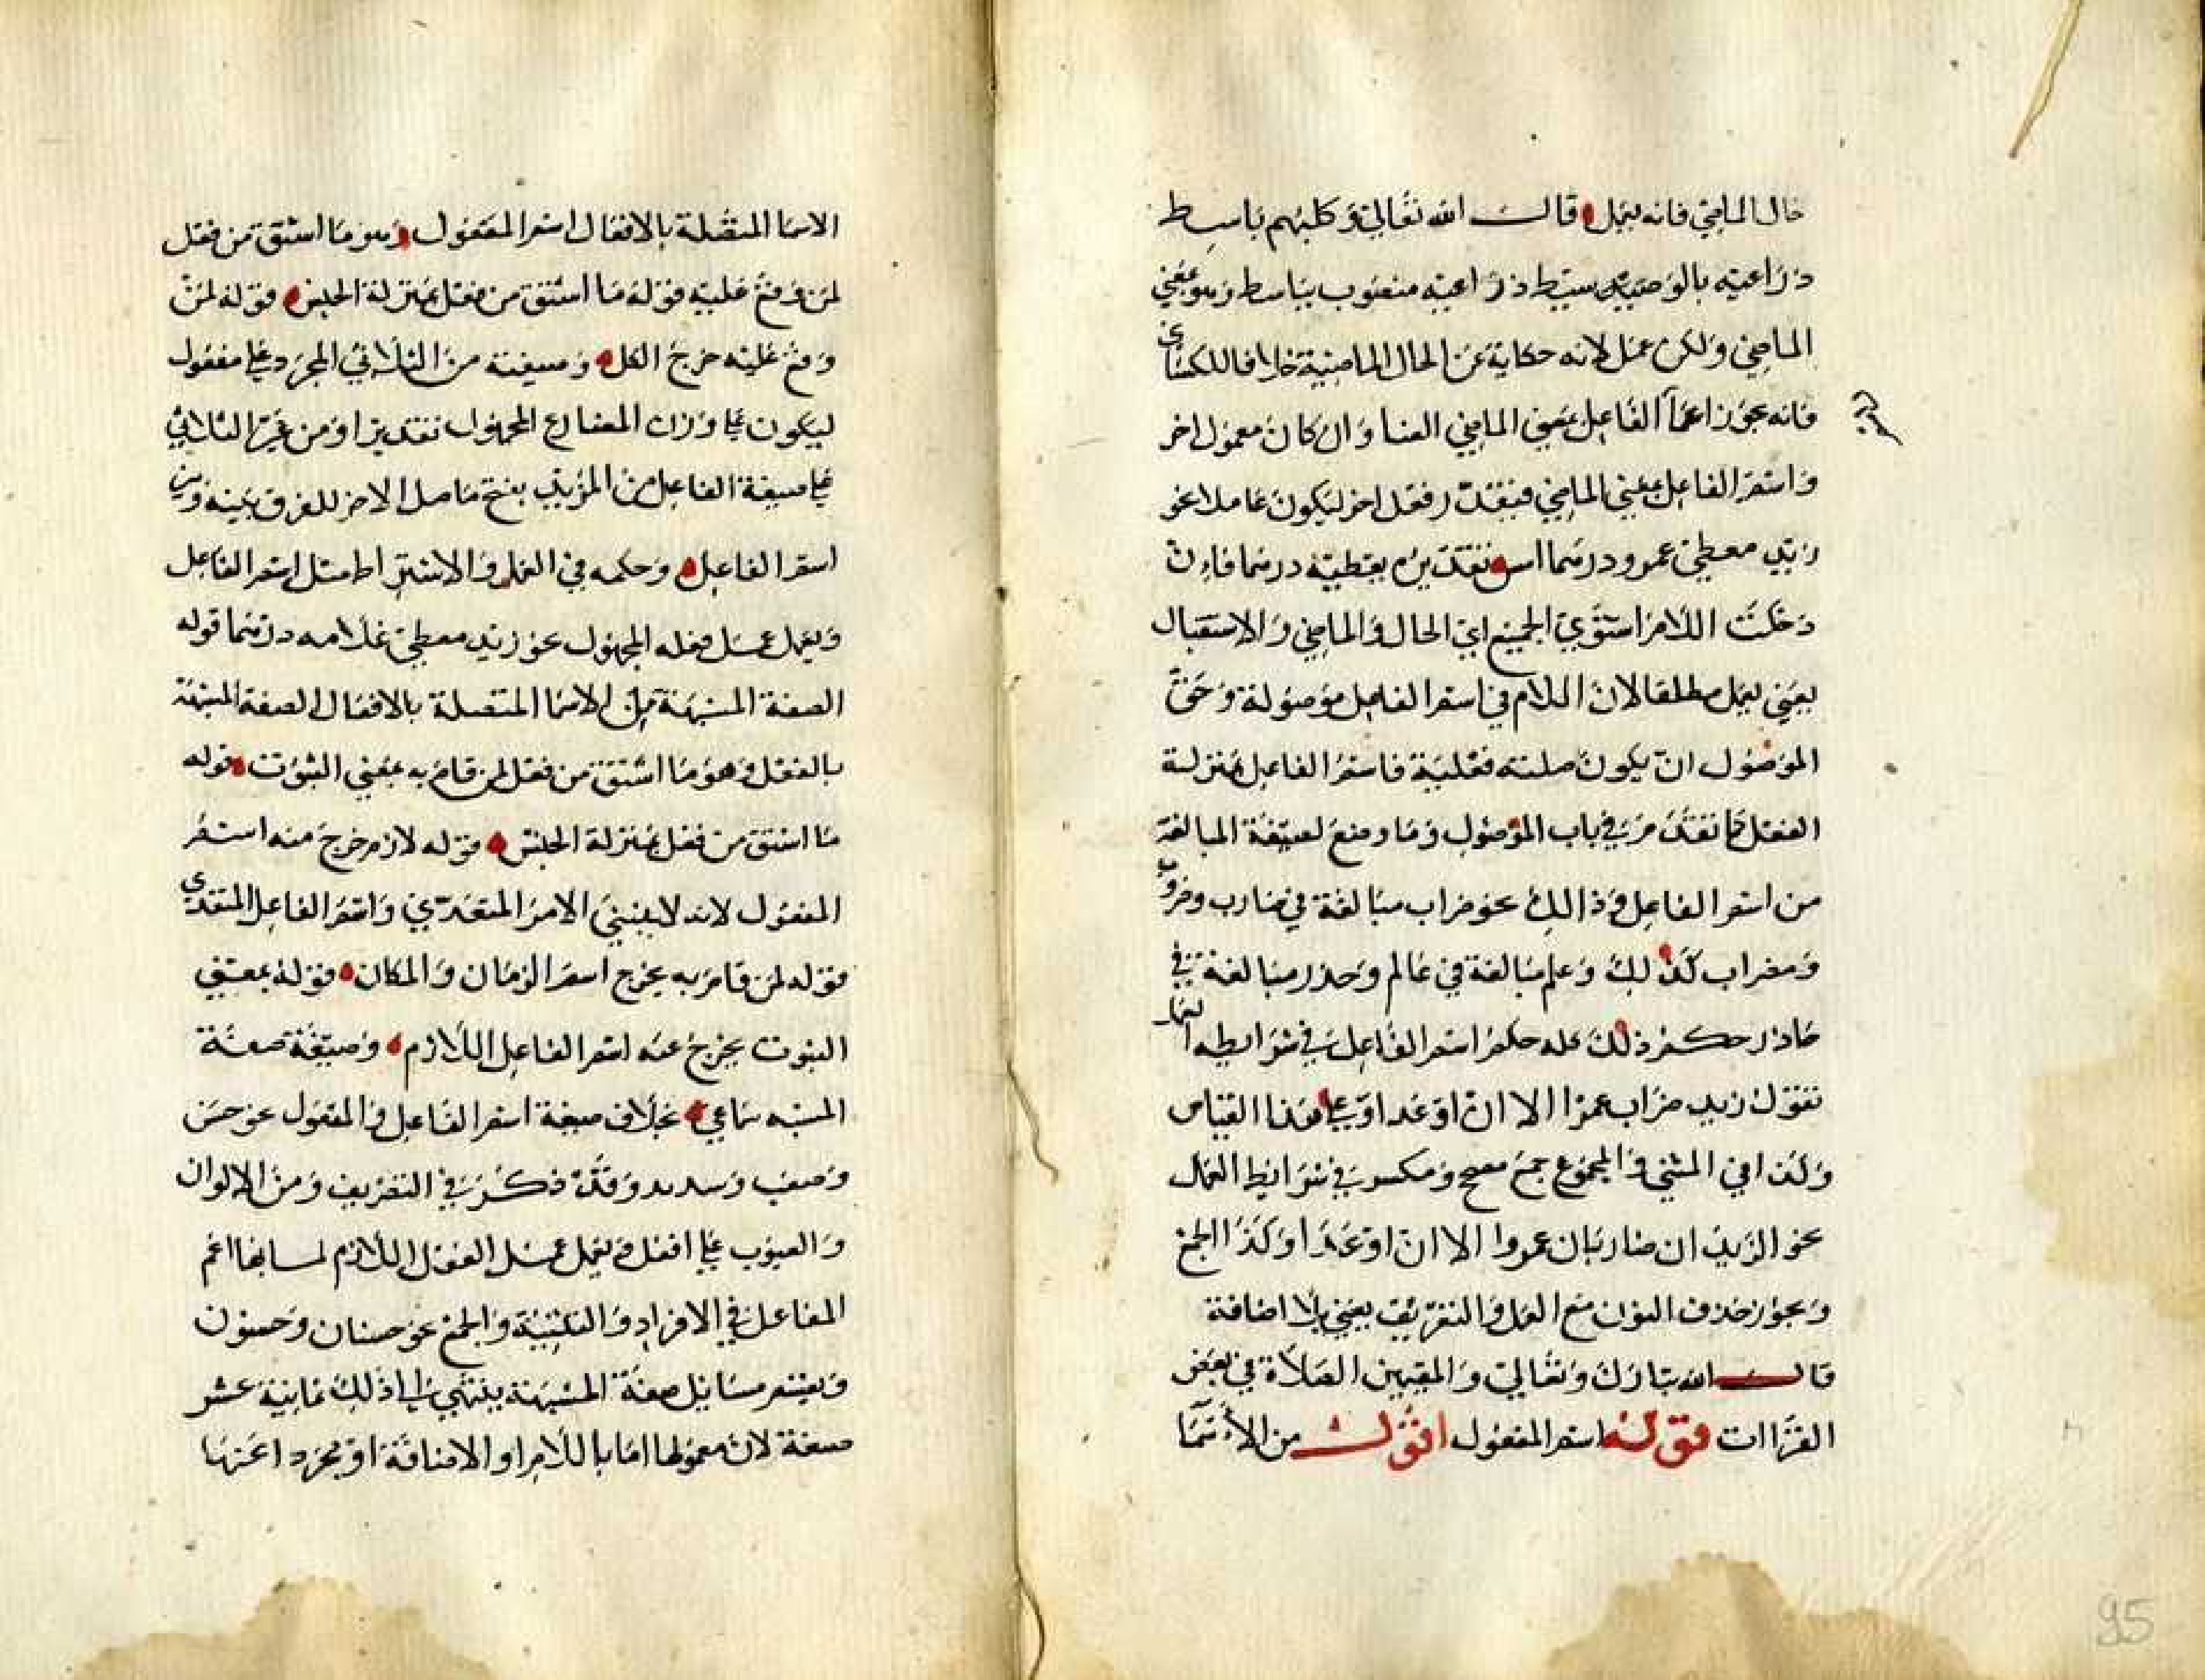 حال الماضي فانه يعمل قالــ الله تعالي وكلبهم باسط
ذراعيه بالوصيد بسيط ذراعيه منصوب بباسط وهو بمعني
الماضي ولكن عمل لانه حكاية عن الحال الماضية خلافا للكسائي
فانه يجوز اعمال الفاعل بمعني الماضي ايضا وان كان معمول اخر
واسم الفاعل بمعني الماضي فيقدر فعل اخر ليكون عاملا نحو
زيد معطي عمرو درهما امس تقديره يعطيه درهما فان
دخلت اللام استوي الجميع اي الحال والماضي والاستقبال
يعني يعمل مطلقا لان اللام في اسم الفاعل موصولة وحق
الموصول ان يكون صلته فعلية فاسم الفاعل بمنزلة
الفعل كما تقدم في باب الموصول وما وضع لصيغة المبالغة
من اسم الفاعل في ذالك نحو ضراب مبالغة في ضارب وضروب
ومضراب كذلك وعلم مبالغة في عالم وحذر مبالغة في
حاذر حكم ذلك عله حكم اسم الفاعل في شرايطه العمل
تقول زيد ضراب عمرا الا ان او غدا او علي هذا القياس
وكذا في المثني والمجموع جمع مصحح ومكسر في شرايط العمل
نحو الزيد ان ضاربان عمروا الا ان او غدا وكذا الجمع
ويجوز حذف النون مع العمل والتعريف يعني بلا اضافة
قالــ الله تبارك وتعالي والمقيمين الصلاة في بعض
القراات قوله اسم المفعول اقول من الاسما
الاسما المتصلة بالافعال اسم المفعول وهو ما اشتق من فعل
لمن وقع عليه قوله ما اشتق من فعل بمنزلة الجنس قوله لمن
وقع عليه خرج الكل وصيغته من الثلاثي المجرد علي مفعول
ليكون علي وزان المضارع المجهول تقديرا ومن غير الثلاثي
علي صيغة الفاعل من المزيد بفتح ما صل الاخر للفرق بينه وبين
اسم الفاعل وحكمه في العمل والاشتراط مثل اسم الفاعل
ويعمل عمل فعله المجهول نحو زيد معطي غلامه درهما قوله
الصفة المشبهة من الاسما المتصلة بالافعال الصفة المشبهة
بالفعل وهو ما اشتق من فعل لمن قام به بمعني الثبوت قوله
ما اشتق من فعل بمنزلة الجنس قوله لازم خرج منه اسم
المفعول لانه لا يبني الا من المتعدي واسم الفاعل المتعدي
قوله لمن قام به يخرج اسم الزمان والمكان قوله بمعني
الثبوت يخرج عنه اسم الفاعل اللازم وصيغة صفة
المشبه سماعي بخلاف صيغة اسم الفاعل والمفعول نحو حسن
وصعب وشديد وقد ذكر في التعريف ومن الالوان
والعيوب علي افعل ويعمل عمل الفعل اللازم لمسابها اسم
الفاعل في الافراد والتثنية والجمع نحو حسنان وحسنون
ويقسم مسايل صفة المشبهة ينتهي الي ذلك ثمانية عشر
صفة لان معمولها اما باللام او الاضافة او مجرد اعنها